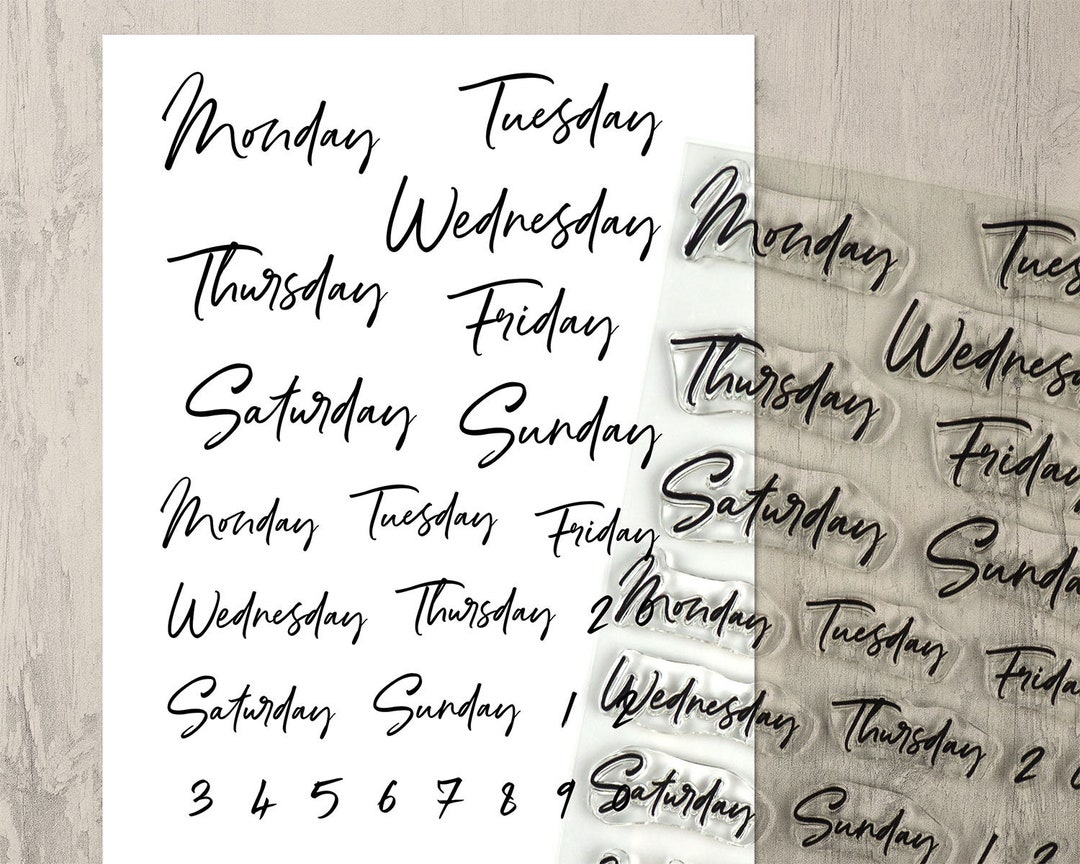 Monday Tuesday
Wednesday
Thursday Friday
Saturday Sunday
Monday Tuesday Friday
Wednesday Thursday 2 0
Saturday Sunday 1 2
3 4 5 6 7 8 9 0
Monday
Wednesday
Thursday
Friday
Saturday
Monday Tuesday
Wednesday Thursday 2
Saturday Sunday 1 2